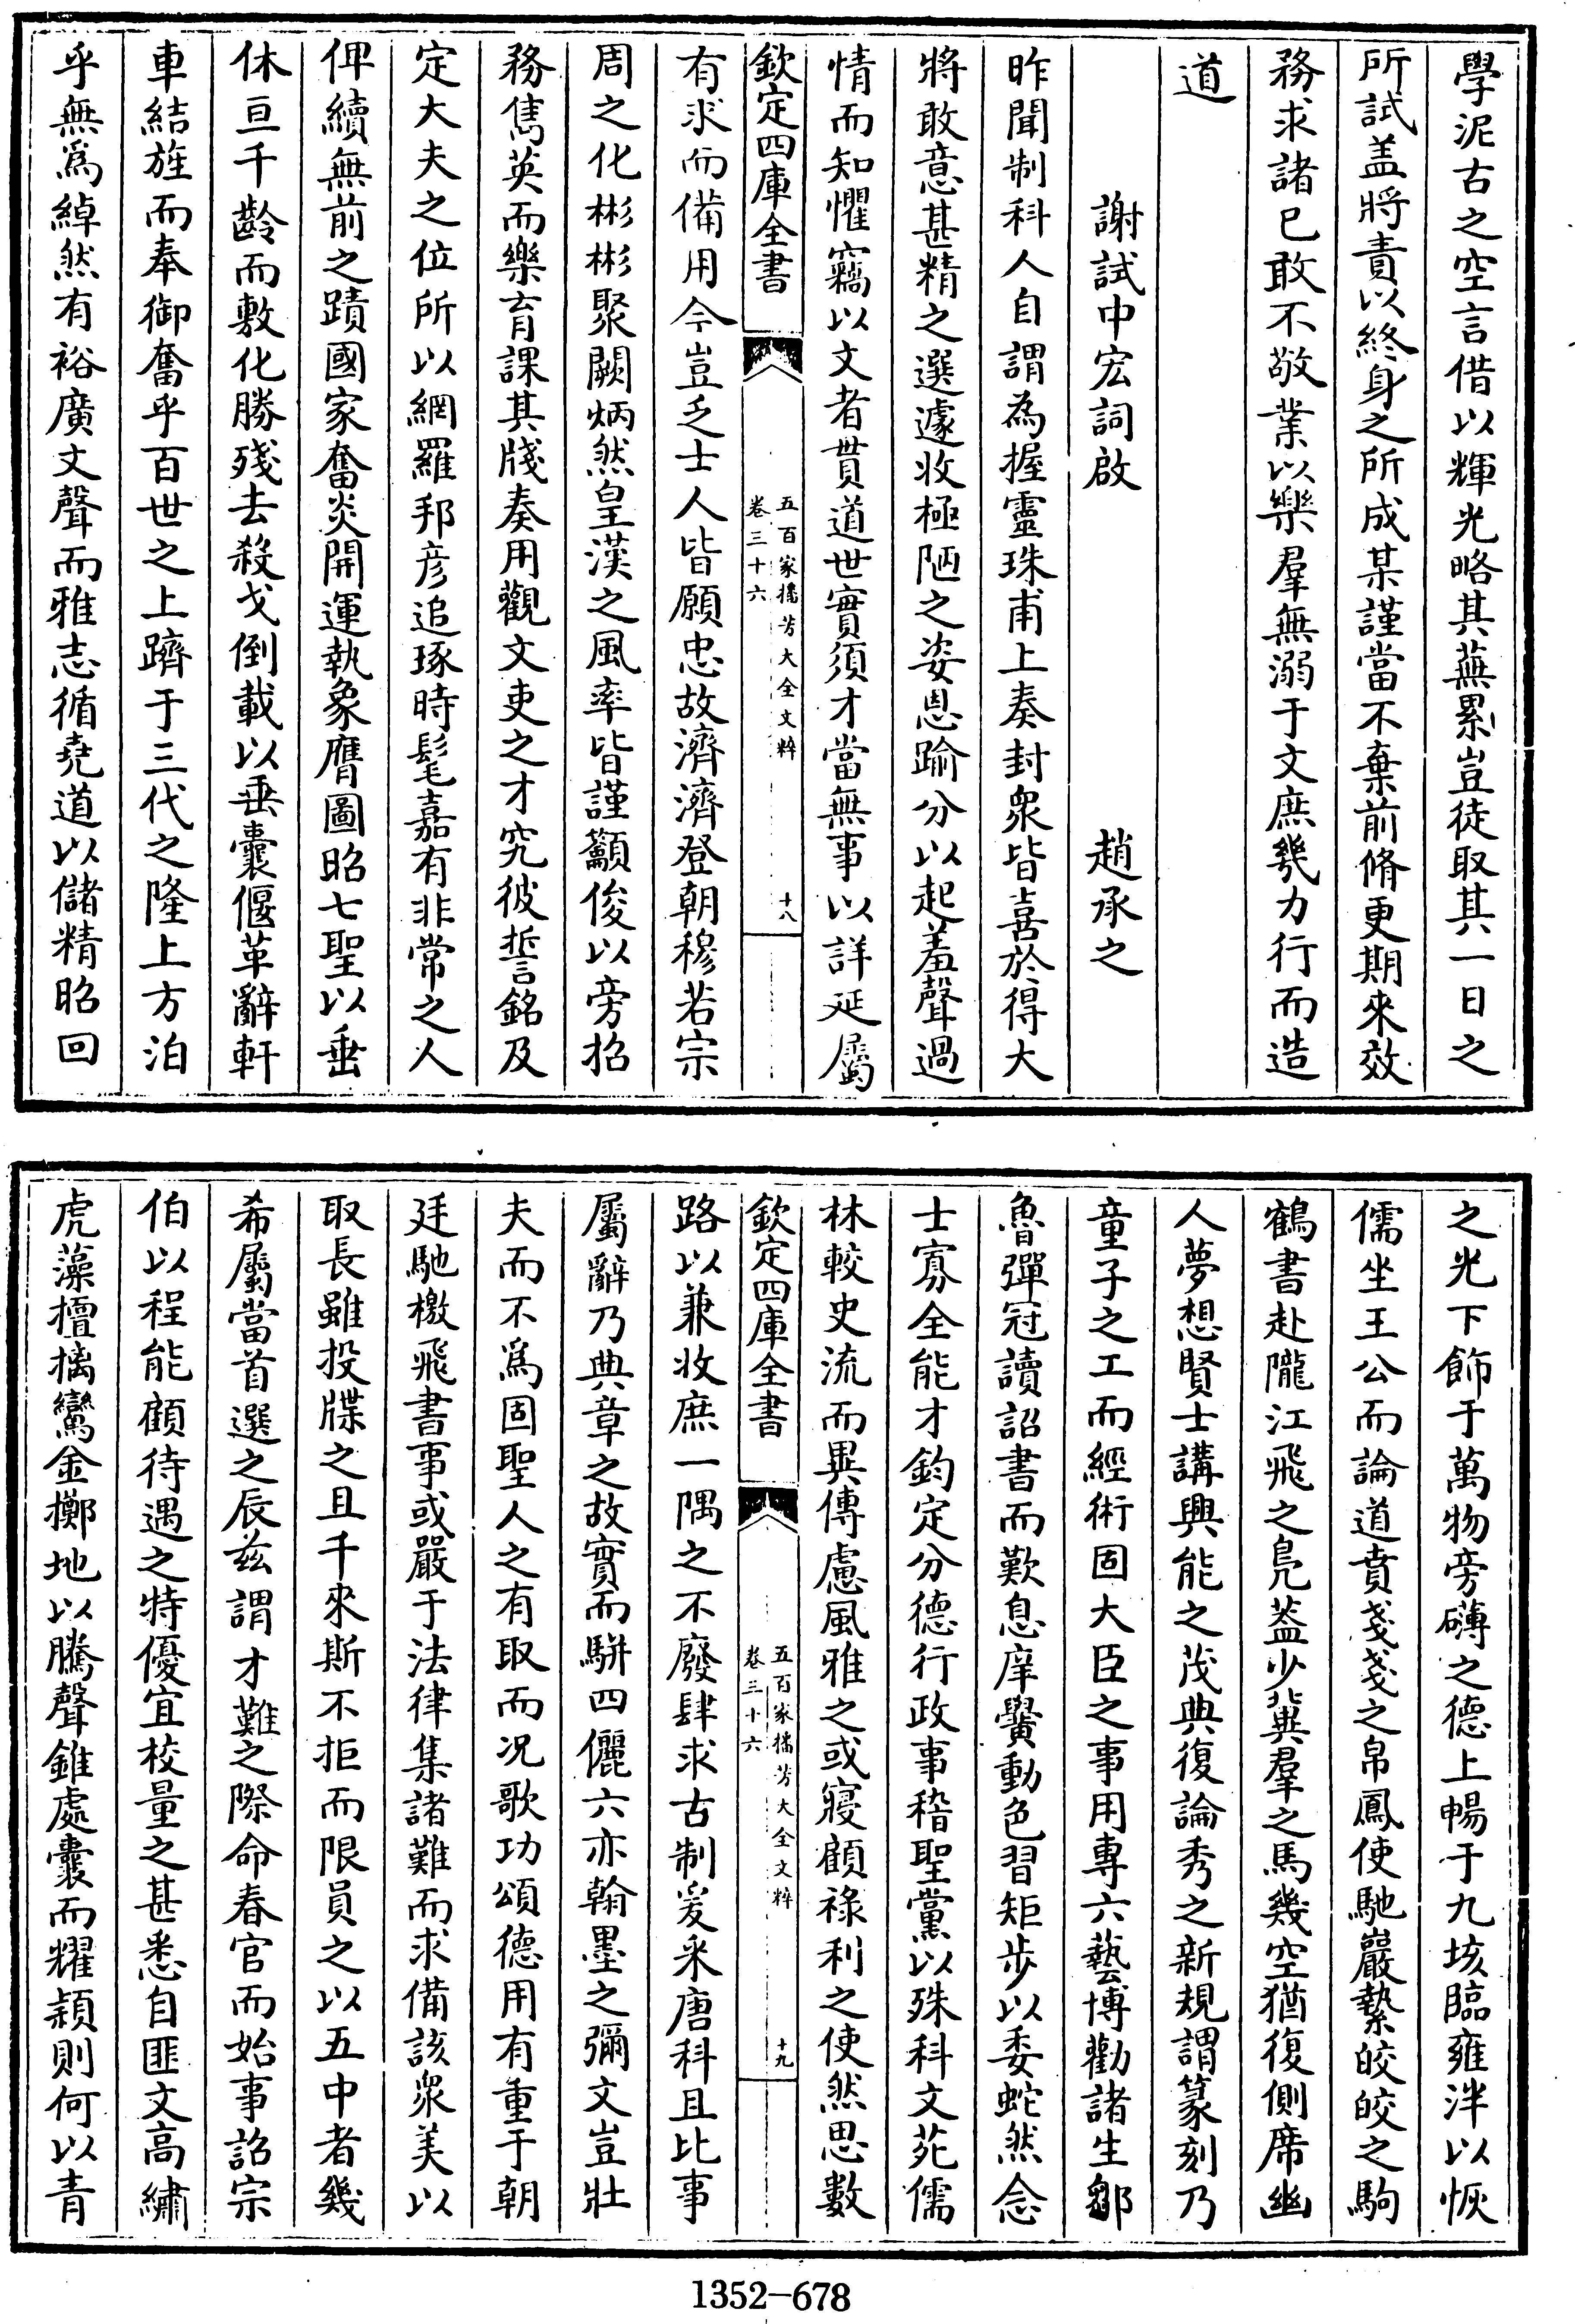 學泥古之空言借以輝光略其蕪累豈徒取其一日之
所試盖將責以終身之所成某謹當不棄前脩更期來效
務求諸已敢不敬業以樂羣無溺于文庶幾力行而造
道
謝試中宏詞啟 趙承之
昨聞制科人自謂為握靈珠甫上奏封衆皆喜於得大
將敢意甚精之選遽收極陋之姿恩踰分以起羞聲過
情而知懼竊以文者貫道世實須才當無事以詳延屬
欽定四庫全書
五百家播芳大全文粹
卷三十六
十八
有求而備用今豈乏士人皆願忠故濟濟登朝穆若宗
周之化彬彬聚闕炳然皇漢之風率皆謹籲俊以旁招
務雋英而樂育課其牋奏用觀文吏之才究彼誓銘及
定大夫之位所以網羅邦彦追琢時髦嘉有非常之人
俾續無前之蹟國家奮炎開運執象膺圖昭七聖以垂
休亘千齡而敷化勝殘去殺戈倒載以垂囊偃革辭軒
車結旌而奉御奮乎百世之上躋于三代之隆上方泊
乎無為綽然有裕廣文聲而雅志循堯道以儲精昭回
之光下飾于萬物旁礴之德上暢于九垓臨雍泮以恢
儒坐王公而論道賁戔戔之帛鳳使馳巖縶皎皎之駒
鶴書赴隴江飛之鳧蓋少冀羣之馬幾空猶復側席幽
人夢想賢士講興能之茂典復論秀之新規謂篆刻乃
童子之工而經術固大臣之事用專六藝博勸諸生鄒
魯彈冠讀詔書而歎息庠黌動色習矩步以委蛇然念
士寡全能才鈞定分德行政事稽聖黨以殊科文苑儒
林較史流而異傳慮風雅之或寢顧祿利之使然思數
欽定四庫全書
五百家播芳大全文粹
卷三十六
十九
路以兼收庶一隅之不廢肆求古制爰采唐科且比事
屬辭乃典章之故實而駢四儷六亦翰墨之彌文豈壯
夫而不為固聖人之有取而况歌功頌德用有重于朝
廷馳檄飛書事或嚴于法律集諸難而求備該衆美以
取長雖投牒之且千來斯不拒而限員之以五中者幾
希屬當首選之辰兹謂才難之際命春官而始事詔宗
伯以程能顧待遇之特優宜校量之甚悉自匪文高繡
虎藻擅摛鸞金擲地以騰聲錐處囊而耀穎則何以青
1352-678